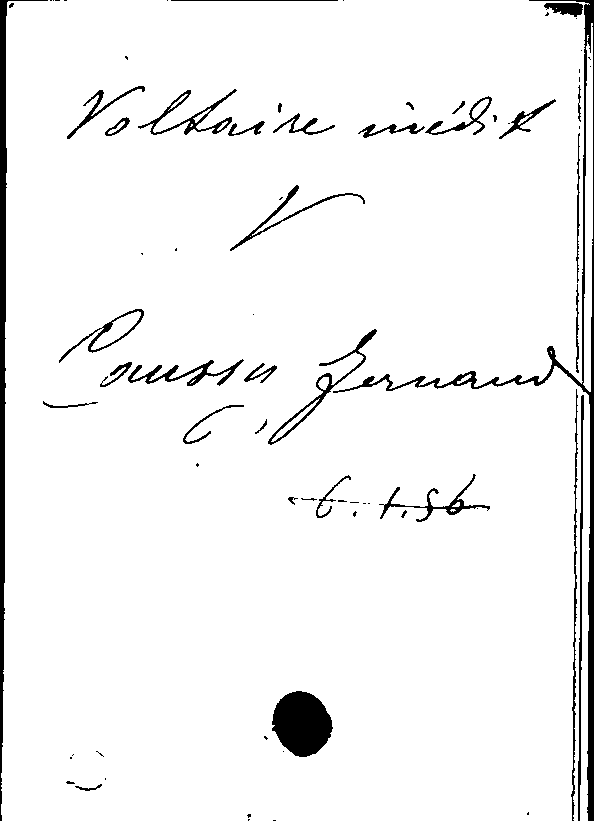 Voltaire inédit
V
Caussy Fernand
6.1.56